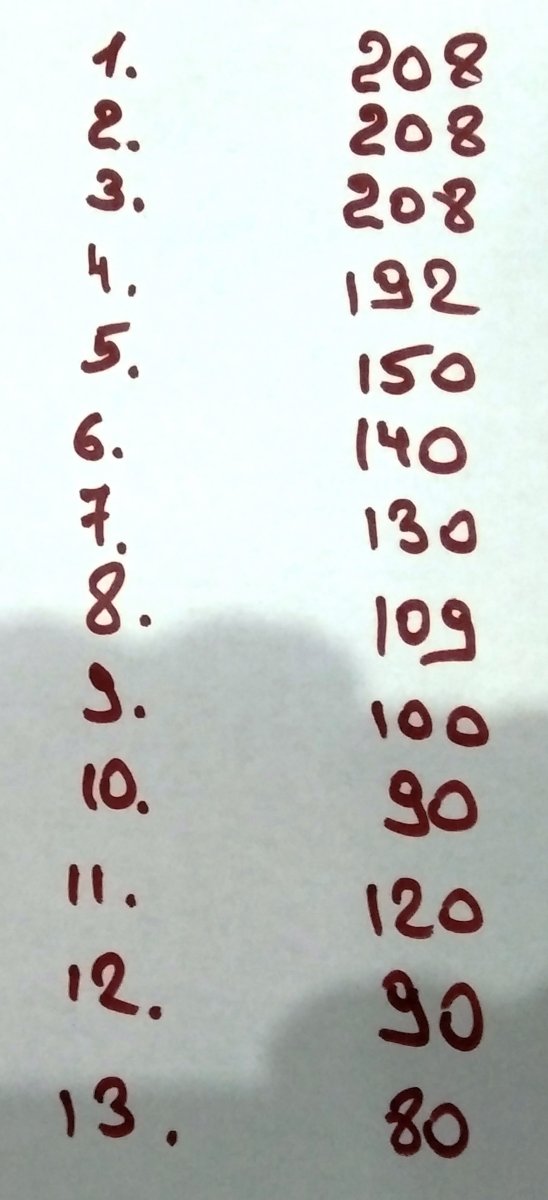 1. 208
2. 208
3. 208
4. 192
5. 150
6. 140
7. 130
8. 109
9. 100
10. 90
11. 120
12. 90
13. 80